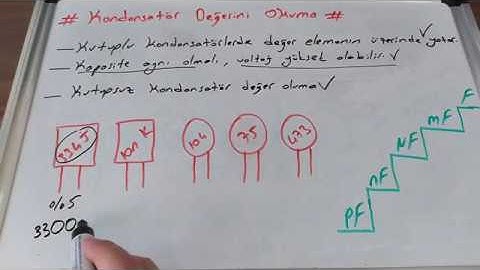 # Kondansatör Değerini Okuma #
— Kutuplu Kondansatörlerde değer elemanın üzerinde yazar. ✓
— Kapasite aynı olmalı, voltaj yüksek olabilir. ✓
— Kutupsuz Kondansatör değer okuma ✓
334 J
10n K
104
2,5
473
%5
3300
pF
nF
µF
mF
F